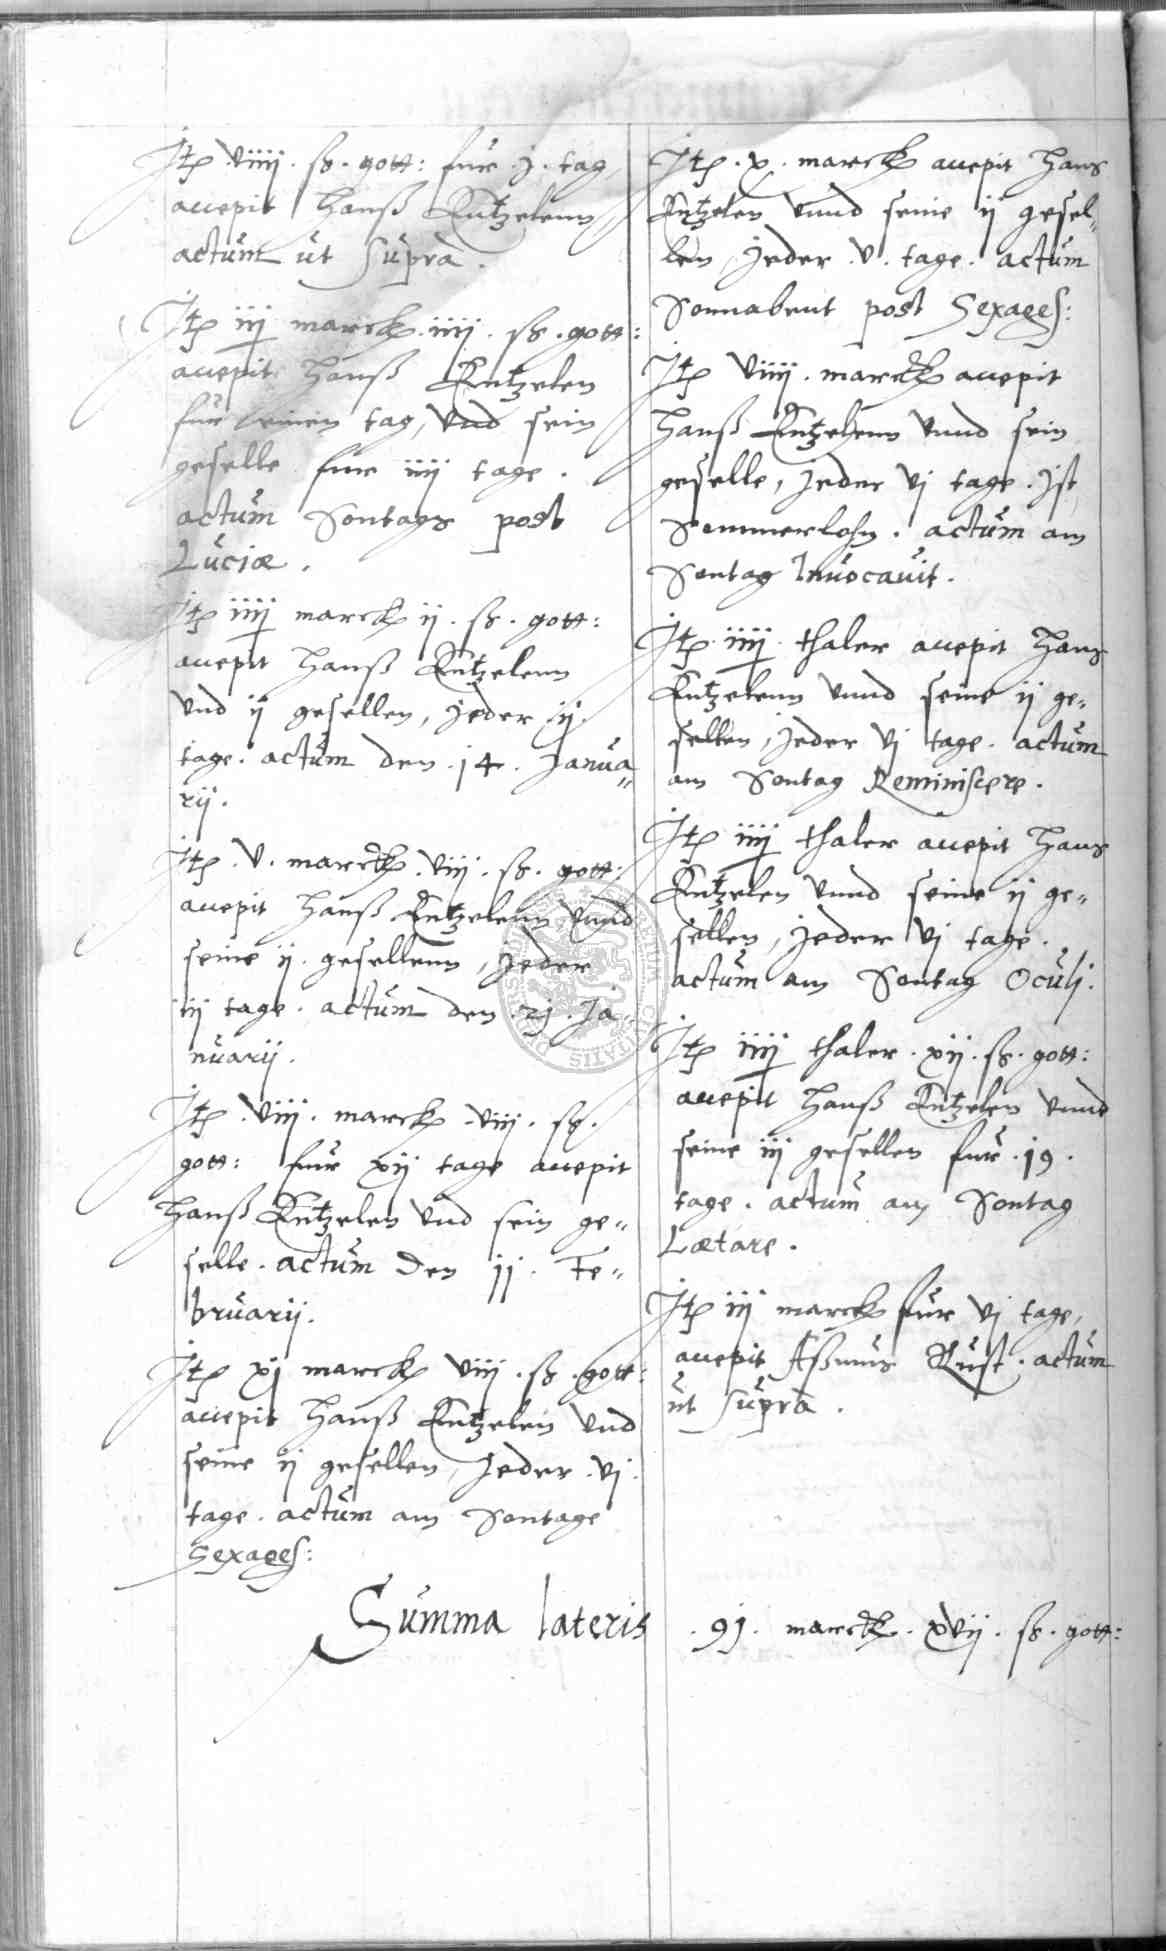 Jtē viiij . ßs . gott: für .j. tag
accepit Hanß Entzelenn
actum ut supra .
Jtē iij marck iiij . ßs . gott:
accepit Hanß Entzelen
für einen tag, vnd sein
geselle fur iiij tage .
actum Sontags post
Luciæ .
Jtē iiij marck ij . ßs . gott:
accepit Hanß Entzelenn
vnd ij gesellen, jeder ij
tage . actum den . 14 . Janua„
rij .
Jtē . v . marck . viij . ßs . gott:
accepit Hanß Entzelenn vnnd
seine ij . gesellenn, jeder
iij tage . actum den . 21 . Ja
nuarij .
Jtē . viij . marck . viij . ßs .
gott: fur xij tage accepit
Hanß Entzelen vnd sein ge„
selle . actum den 11 . Fe„
bruarij .
Jtē xj marck viij . ßs . gott:
accepit Hanß Entzelen vnd
seine ij gesellen, jeder . vj .
tage . actum am Sontage
Sexages:
Jtē . x . marck accepit Hans
Entzelen vnnd seine ij gesel„
len, jeder . v . tage . actum
Sonnabent post Sexages:
Jtē viiij . marck accepit
Hanß Entzelenn vnnd sein
geselle, jeder vj tage . Jst
Sommerlohn . actum am
Sontag Invocauit .
Jtē . iiij . thaler accepit Hans
Entzelenn vnnd seine ij ge„
sellen, jeder vj tage . actum
am Sontag Reminiscere .
Jtē iiij thaler accepit Hans
Entzelen vnnd seine ij ge„
sellen, jeder vj tage .
actum am Sontag Oculj .
Jtē iiij thaler . xij . ßs . gott:
accepit Hanß Entzelen vnnd
seine iij gesellen fur . 19 .
tage . actum am Sontag
Lætare .
Jtē iij marck für vj tage,
accepit Aßmus Rust . actum
ut supra .
Summa lateris . 91 . marck . xvij . ßs . gott: